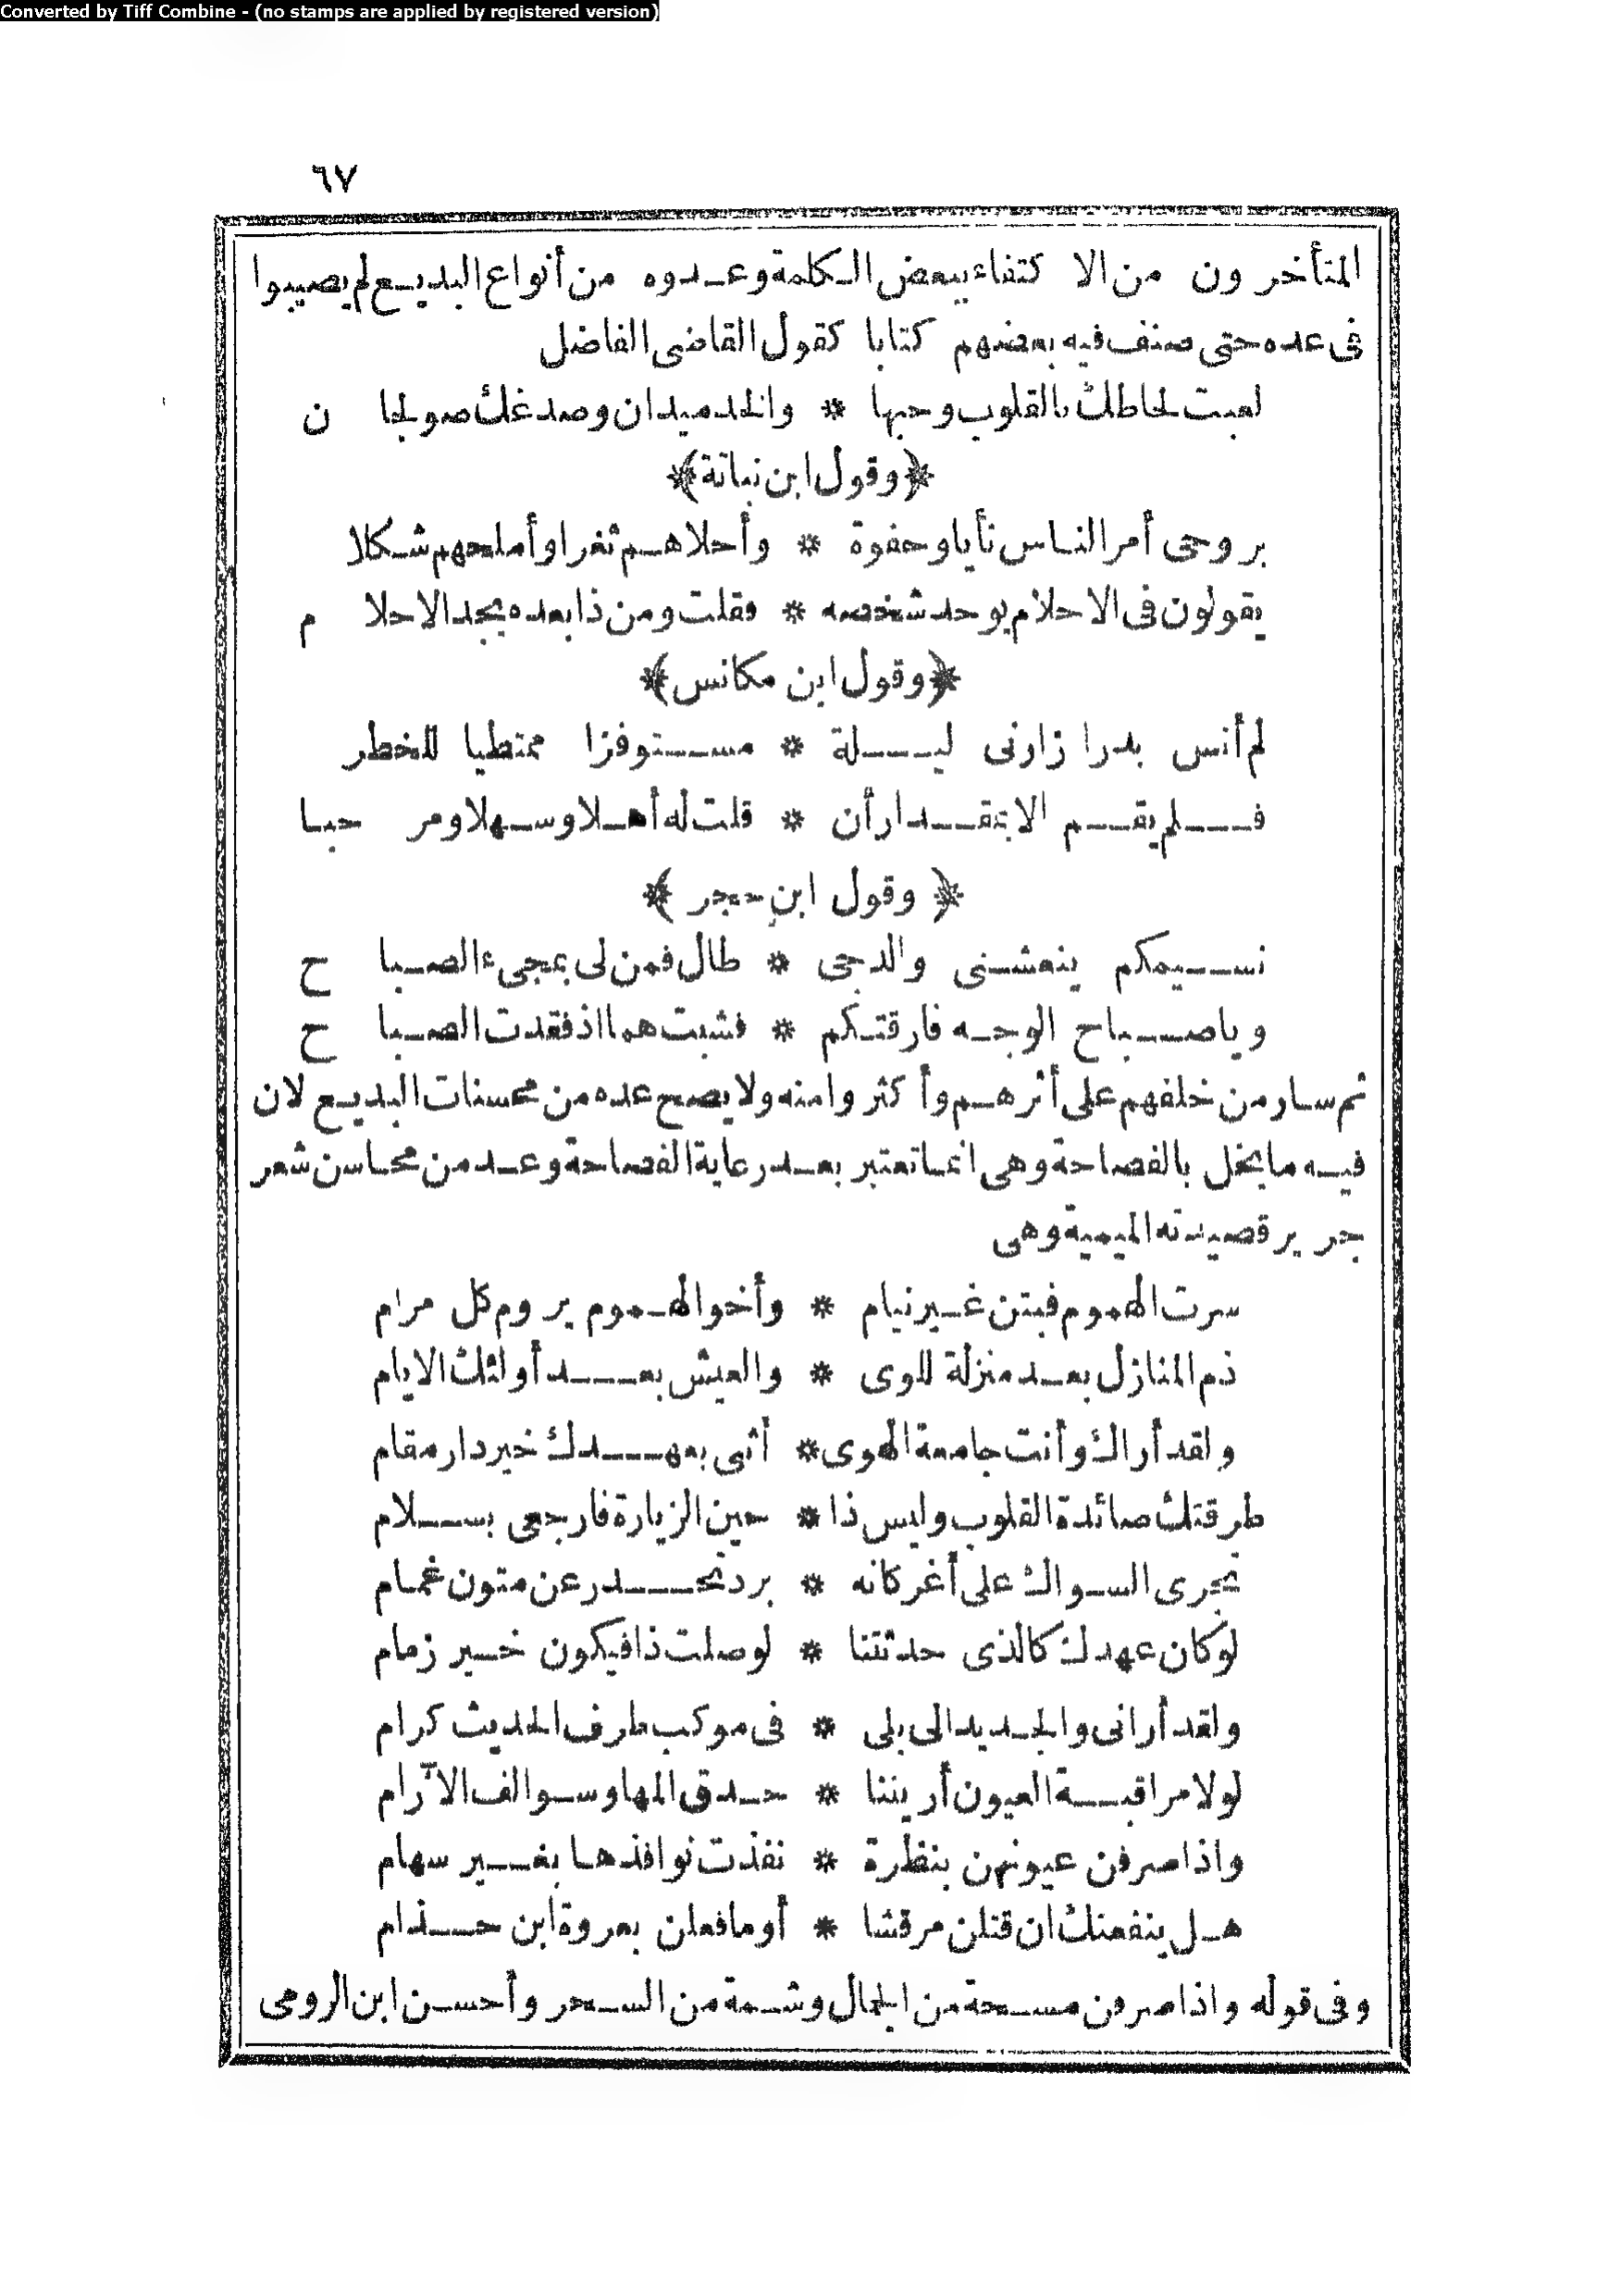 Converted by Tiff Combine - (no stamps are applied by registered version)
٦٧
المتأخرون من الاكتفاء ببعض الكلمة وعدوه من أنواع البديع لم يصيبوا
فى عده حتى صنف فيه بعضهم كتابا كقول القاضى الفاضل
لعبت لحاظك بالقلوب وحبها * والخد ميدان وصدغك صولجا ن
﴿وقول ابن نباتة﴾
بروحى أمر الناس نأيا وجفوة * وأحلاهم ثغرا وأملحهم شكلا
يقولون فى الاحلام يوجد شخصه * فقلت ومن ذا بعده يجد الاحلا م
﴿وقول ابن مكانس﴾
لم أنس بدرا زارنى ليلة * مستوفزا ممتطيا للخطر
فلم يقم الا بمقدار أن * قلت له أهلا وسهلا ومر حبا
﴿ وقول ابن حجر ﴾
نسيمكم ينعشنى والدجى * طال فمن لى بمجىء الصبا ح
ويا صباح الوجه فارقتكم * فشبت هما اذ فقدت الصبا ح
ثم سار من خلفهم على أثرهم وأكثروا منه ولا يصح عده من محسنات البديع لان
فيه ما يخل بالفصاحة وهى انما تعتبر بعد رعاية الفصاحة وعد من محاسن شعر
جرير قصيدته الميمية وهى
سرت الهموم فبتن غير نيام * وأخو الهموم يروم كل مرام
ذم المنازل بعد منزلة للوى * والعيش بعد أولئك الايام
ولقد أراك وأنت جامعة الهوى * أثى بعهدك خير دار مقام
طرقتك صائدة القلوب وليس ذا * حين الزيارة فارجعى بسلام
تجرى السواك على أغر كانه * برد تحدر عن متون غمام
لو كان عهدك كالذى حدثتنا * لوصلت ذا فيكون خير زمام
ولقد أرانى والجديد الى بلى * فى موكب طرف الحديث كرام
لولا مراقبة العيون أريننا * حدق المها وسوالف الآرام
واذا صرفن عيونهن بنظرة * نفذت نوافذها بغير سهام
هل ينفعنك ان قتلن مرقشا * أو ما فعلن بعروة ابن حذام
وفى قوله واذا صرفن مسحة من الجمال وشمة من السحر وأحسن ابن الرومى